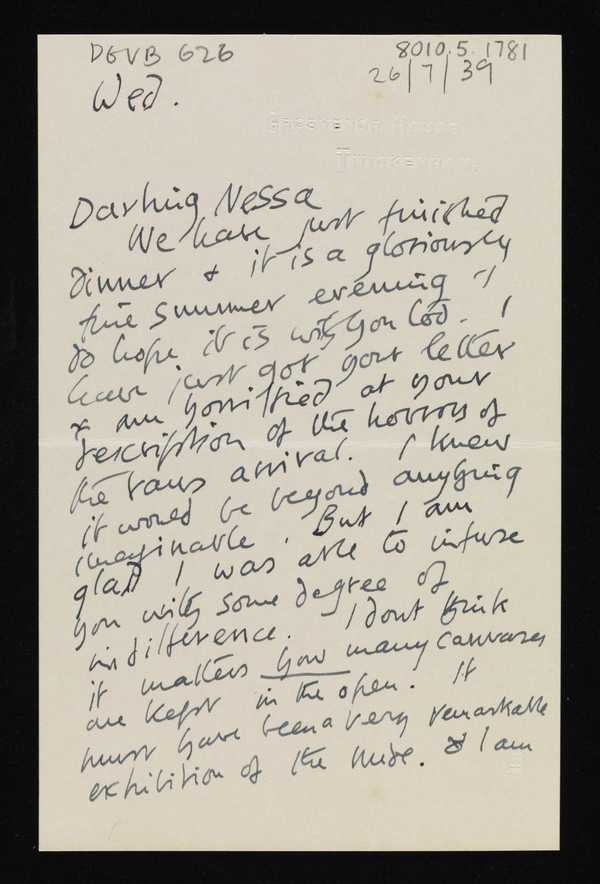 DGVB 626
8010.5.1781
26/7/39
Wed.
Grosvenor House
Twickenham.
Darling Nessa
We have just finished
dinner & it is a gloriously
fine summer evening - I
do hope it is with you too. I
have just got your letter
& am horrified at your
description of the horrors of
the vans arrival. I knew
it would be beyond anything
imaginable. But I am
glad I was able to infuse
you with some degree of
indifference. I dont think
it matters how many canvases
are kept in the open. It
must have been a very remarkable
exhibition of the nude. & I am